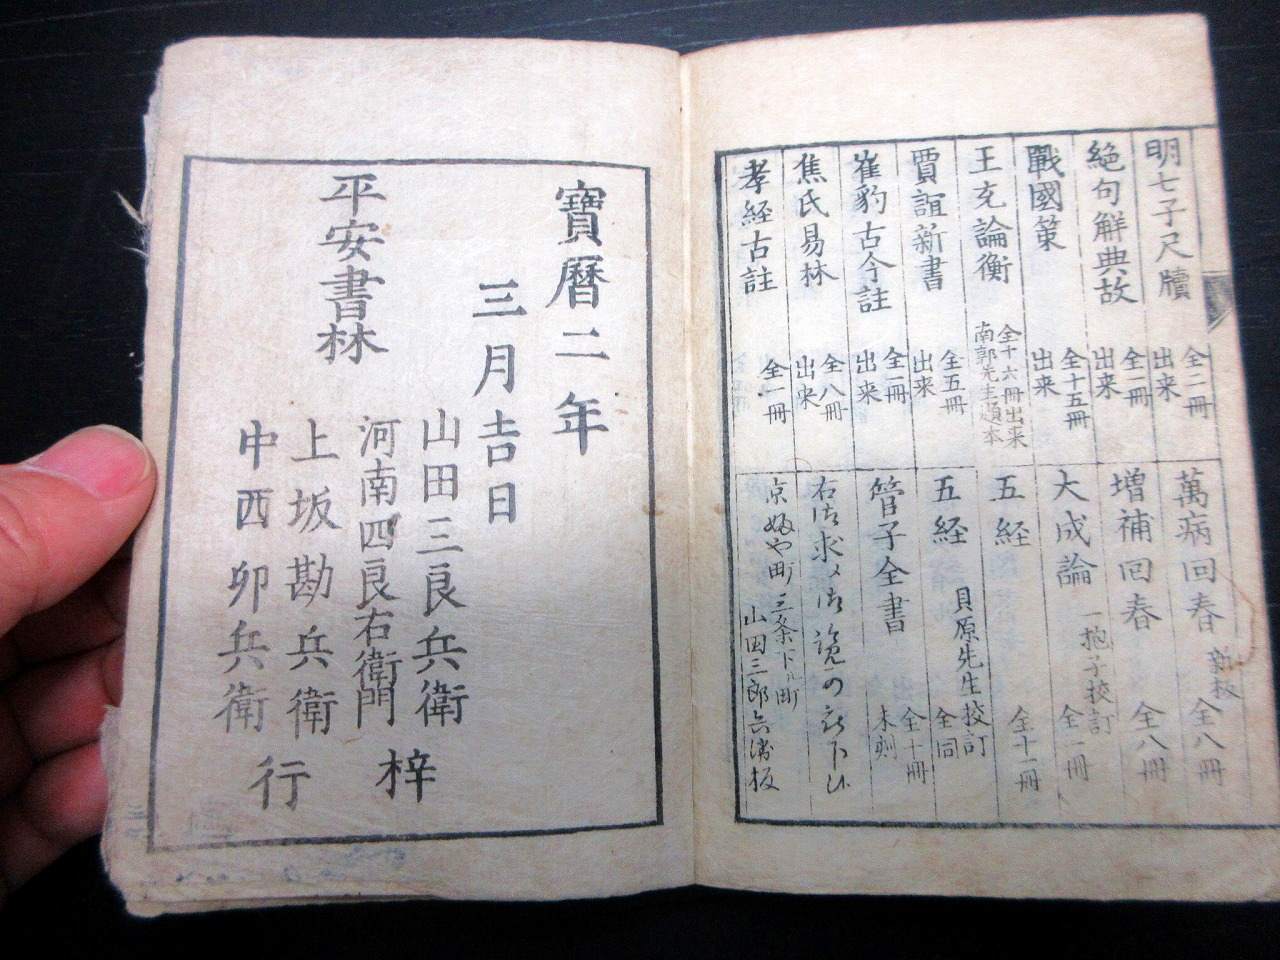 明七子尺牘 全二冊 出来
絶句解典故 全一冊 出来
戰國策 全十五冊 出来
王充論衡 全十六冊出来 南郭先生
賈誼新書 全五冊 出来
崔豹古今註 全一冊 出来
焦氏易林 全八冊 出来
孝経古註 全一冊
萬病回春 新板 全八冊
増補回春 全八冊
大成論 一抱子挍訂 全一冊
五経 全十一冊
五経 貝原先生挍訂 全同
管子全書 全十冊 未刻
右御求メ御覧可被下候
京ふや町三条下ル町
山田三郎兵衛板
寶曆二年
三月吉日
平安書林
山田三良兵衛
河南四良右衛門
上坂勘兵衛
中西卯兵衛
梓
行